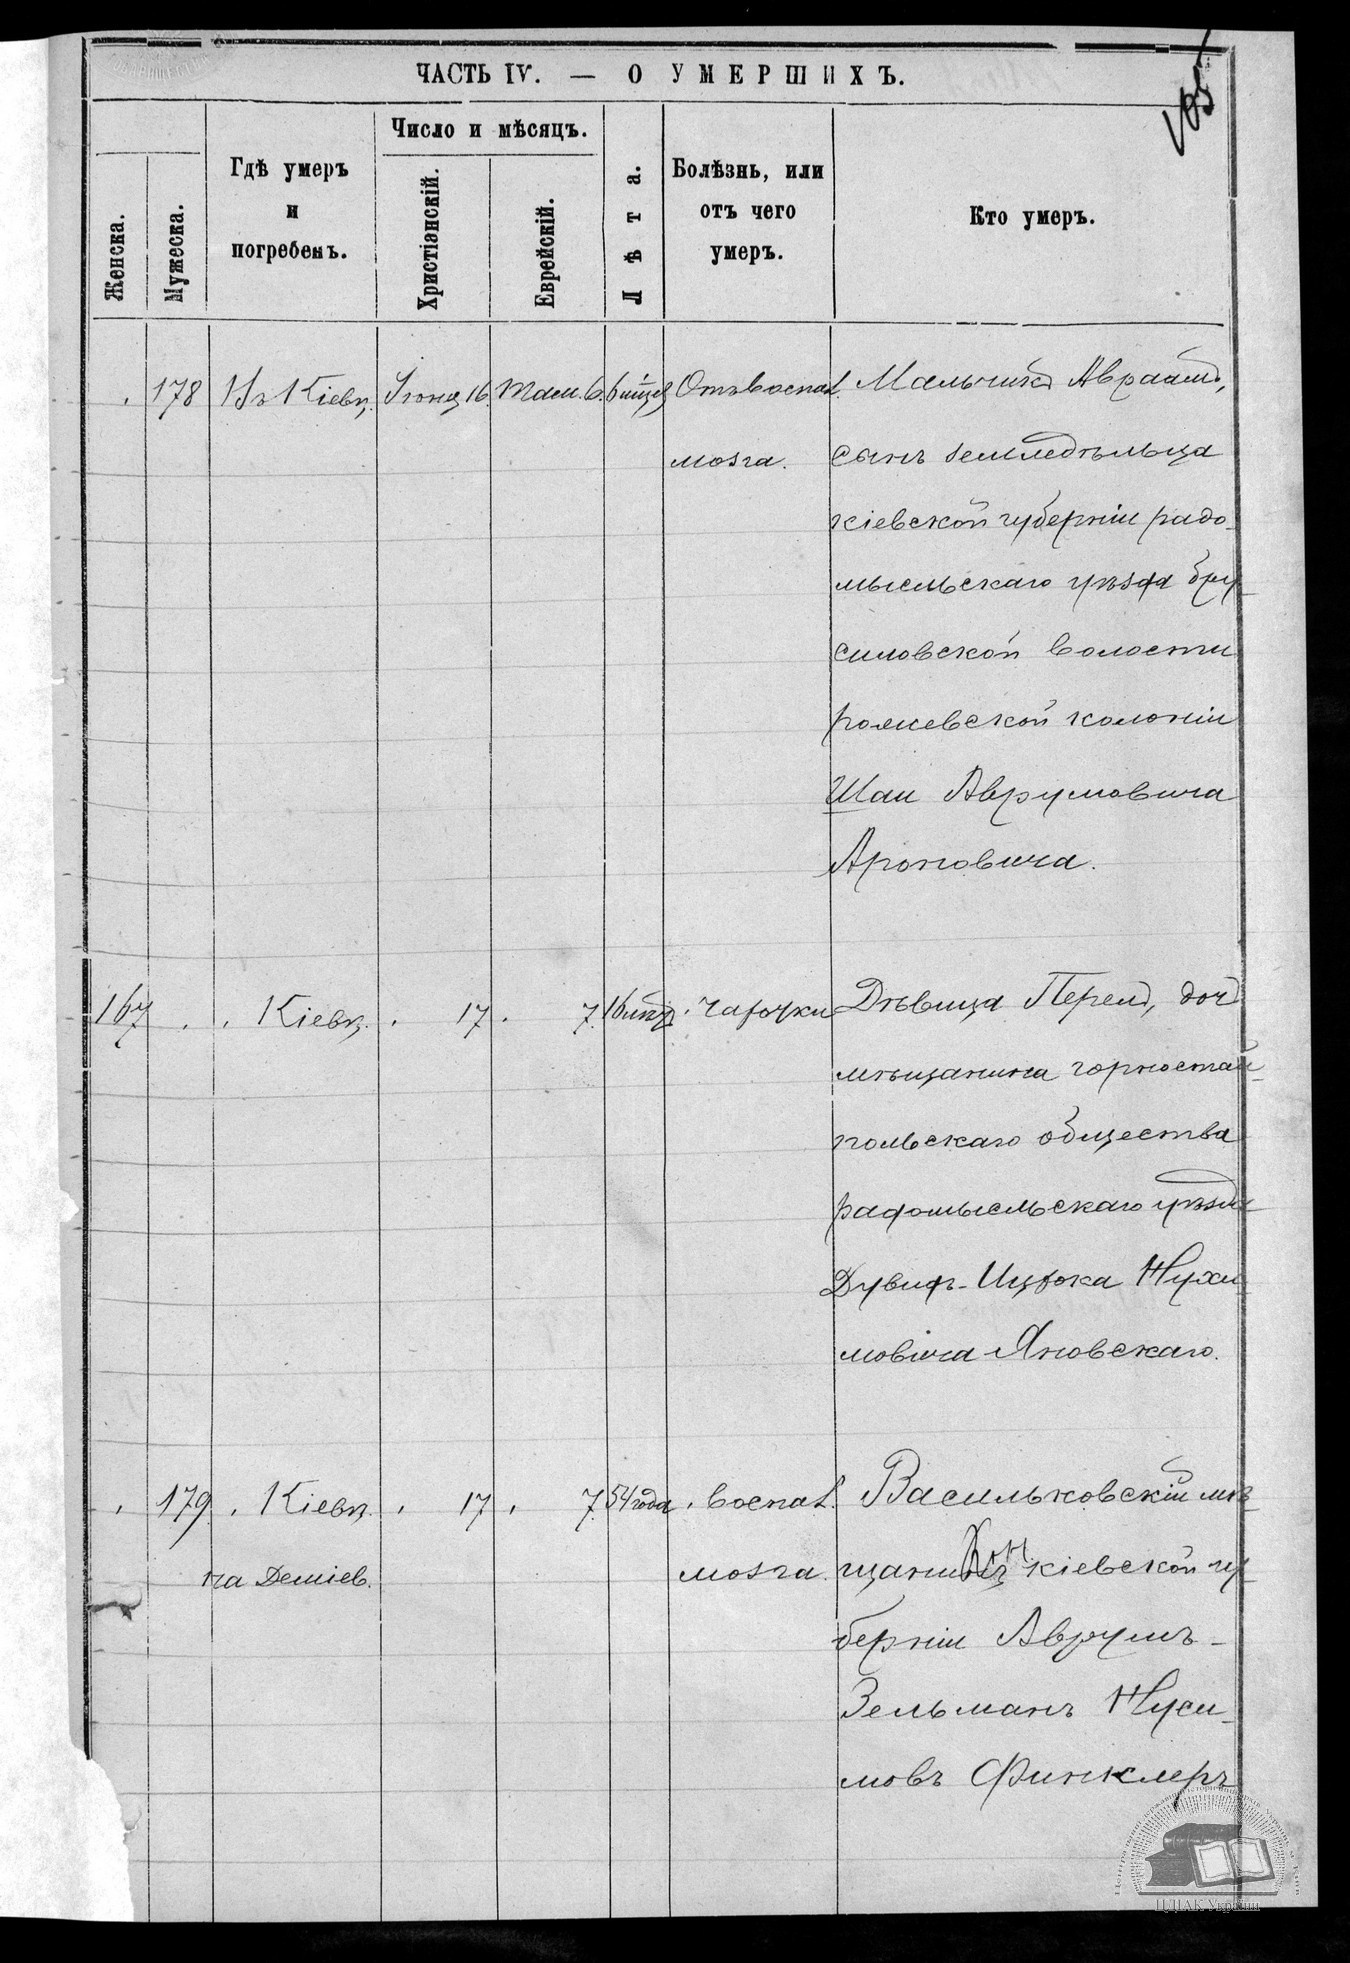 ЧАСТЬ IV. — О УМЕРШИХЪ.
105
Женска.
Мужеска.
Гдѣ умеръ
и
погребенъ.
Число и мѣсяцъ.
Христіанскій.
Еврейскій.
Лѣта.
Болѣзнь, или
отъ чего
умеръ.
Кто умеръ.
178 Въ Кіевѣ. Іюня 16. Там. 6. 6 мѣс. Отъ воспал. Мальчикъ Авраамъ,
мозга. сынъ земледѣльца
кіевской губерніи радо-
мысльскаго уѣзда бру-
силовской волости
колоніи
Шаи Аврумовича
Ароновича.
167 Кіевѣ. 17 7. 16 лѣтъ чахотки Дѣвица Перелъ, дочь
мѣщанина горностай-
польскаго общества
радомысльскаго уѣзда
Дувидъ-Ицхока Нухи-
мовича Яновскаго.
179 Кіевѣ. 17 7. 54 года воспал. Васильковскій мѣ-
на Деміев. мозга. щанинъ кіевской гу-
берніи Аврумъ-
Зельманъ Нуси-
мовъ Финклеръ
ЦДІАК України